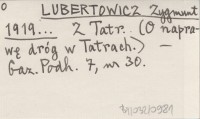 0
LUBERTOWICZ Zygmunt
1919... Z Tatr.. (O napra-
wę dróg w Tatrach.) —
Gaz. Podh. 7, nr 30.